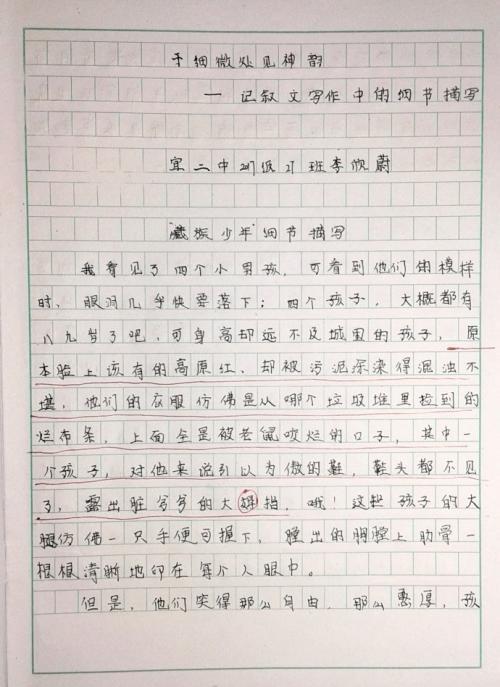 于细微处见神韵
— 记叙文写作中的细节描写
宜二中2017级27班李欣蔚
“藏族少年”细节描写
我看见了四个小男孩，可看到他们的模样
时，眼泪几乎快要落下；四个孩子，大概都有
八九岁了吧，可身高却远不及城里的孩子，原
本脸上该有的高原红，却被污泥深染得混浊不
堪，他们的衣服仿佛是从哪个垃圾堆里捡到的
烂布条，上面全是被老鼠咬烂的口子，其中一
个孩子，对他来说引以为傲的鞋，鞋头都不见
了，露出脏兮兮的大拇指，哦！这些孩子的大
腿仿佛一只手便可握下，膛出的胸膛上肋骨一
根根清晰地印在每个人眼中。
但是，他们笑得那么自由，那么憨厚，孩